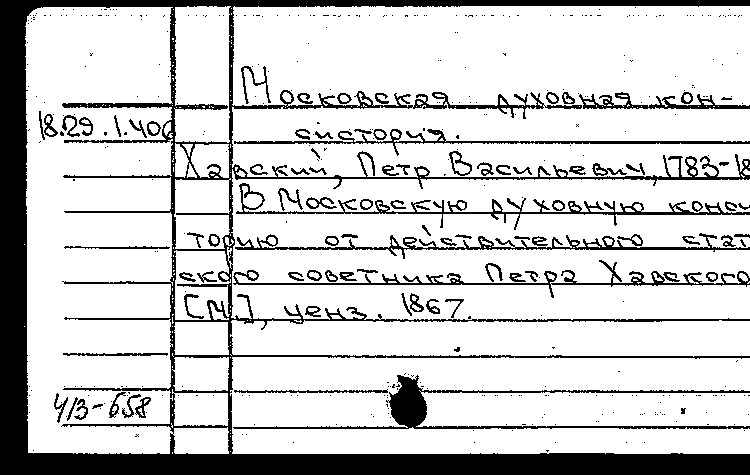 Московская духовная кон-
18.29.1.406 систория.
Хавский, Петр Васильевич, 1783-18
В Московскую духовную конси
торию от действительного стат
ского советника Петра Хавского
[М.], ценз. 1867.
Ч/3-658